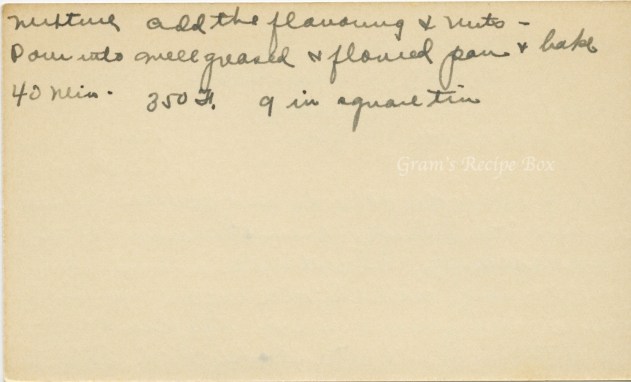 mixture add the flavouring & nuts -
Pour into well greased & floured pan & bake
40 Min. 350 F. 9 in square tin
Gram's Recipe Box